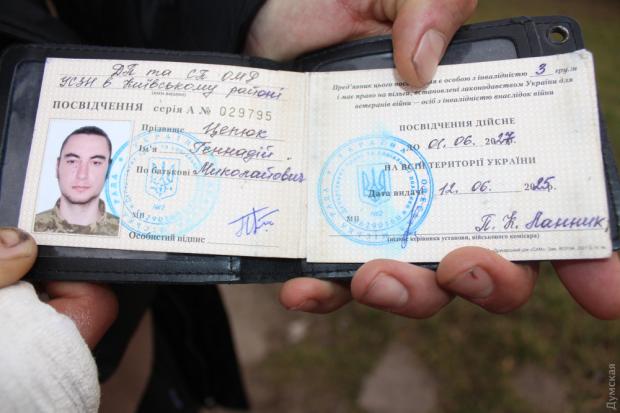 ДП та СП ОМР
УСЗН в Київському районі
ПОСВІДЧЕННЯ серія А № 029795
Прізвище Ценюк
Ім'я Геннадій
По батькові Миколайович
МП
Особистий підпис
Пред'явник цього посвідчення є особою з інвалідністю 3 групи
і має право на пільги, встановлені законодавством України для
ветеранів війни — осіб з інвалідністю внаслідок війни
ПОСВІДЧЕННЯ ДІЙСНЕ
ДО 01.06.2027.
НА ВСІЙ ТЕРИТОРІЇ УКРАЇНИ
Дата видачі 12.06.2025р.
МП
(підпис керівника установи, військового комісара)
Думская